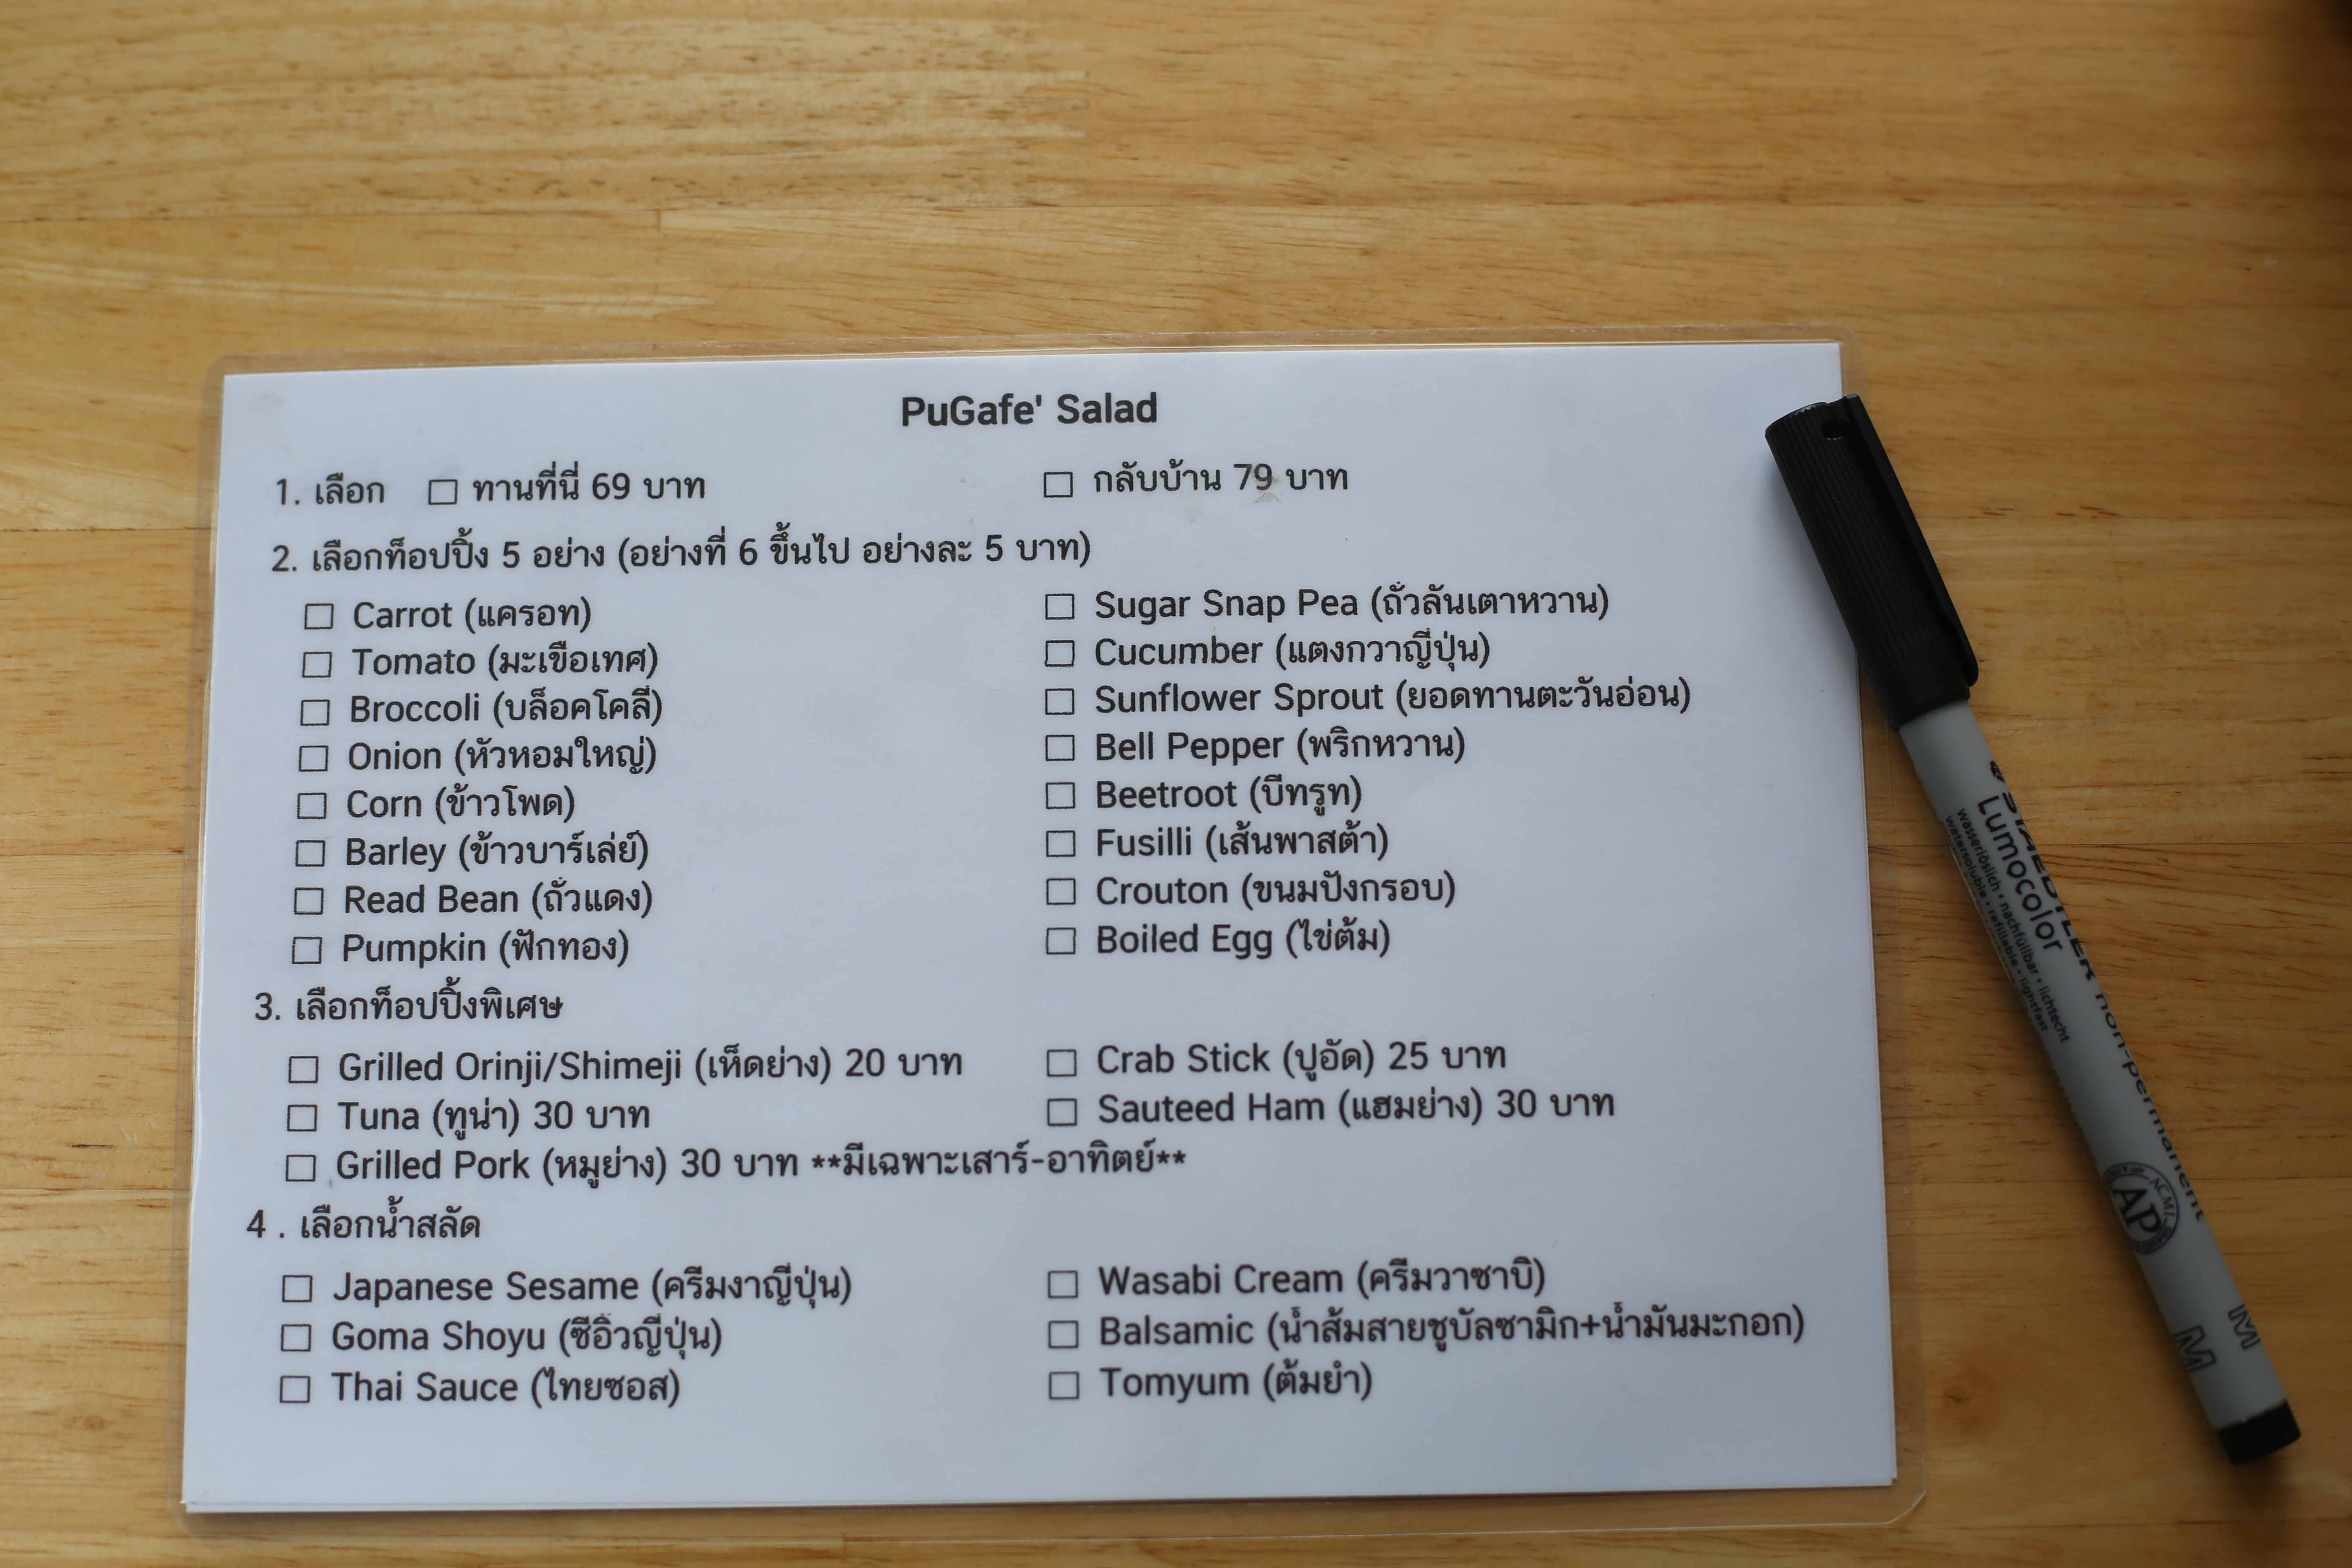 PuGafe' Salad
1. เลือก ☐ ทานที่นี่ 69 บาท ☐ กลับบ้าน 79 บาท
2. เลือกท็อปปิ้ง 5 อย่าง (อย่างที่ 6 ขึ้นไป อย่างละ 5 บาท)
☐ Carrot (แครอท) ☐ Sugar Snap Pea (ถั่วลันเตาหวาน)
☐ Tomato (มะเขือเทศ) ☐ Cucumber (แตงกวาญี่ปุ่น)
☐ Broccoli (บล็อคโคลี่) ☐ Sunflower Sprout (ยอดทานตะวันอ่อน)
☐ Onion (หัวหอมใหญ่) ☐ Bell Pepper (พริกหวาน)
☐ Corn (ข้าวโพด) ☐ Beetroot (บีทรูท)
☐ Barley (ข้าวบาร์เล่ย์) ☐ Fusilli (เส้นพาสต้า)
☐ Read Bean (ถั่วแดง) ☐ Crouton (ขนมปังกรอบ)
☐ Pumpkin (ฟักทอง) ☐ Boiled Egg (ไข่ต้ม)
3. เลือกท็อปปิ้งพิเศษ
☐ Grilled Orinji/Shimeji (เห็ดย่าง) 20 บาท ☐ Crab Stick (ปูอัด) 25 บาท
☐ Tuna (ทูน่า) 30 บาท ☐ Sauteed Ham (แฮมย่าง) 30 บาท
☐ Grilled Pork (หมูย่าง) 30 บาท **มีเฉพาะเสาร์-อาทิตย์**
4 . เลือกน้ำสลัด
☐ Japanese Sesame (ครีมงาญี่ปุ่น) ☐ Wasabi Cream (ครีมวาซาบิ)
☐ Goma Shoyu (ซีอิ๊วญี่ปุ่น) ☐ Balsamic (น้ำส้มสายชูบัลซามิก+น้ำมันมะกอก)
☐ Thai Sauce (ไทยซอส) ☐ Tomyum (ต้มยำ)
STAEDTLER non-permanent
Lumocolor
wasserlöslich • nachfüllbar • lichtecht
watersoluble • refillable • lightfast
AP
M
M